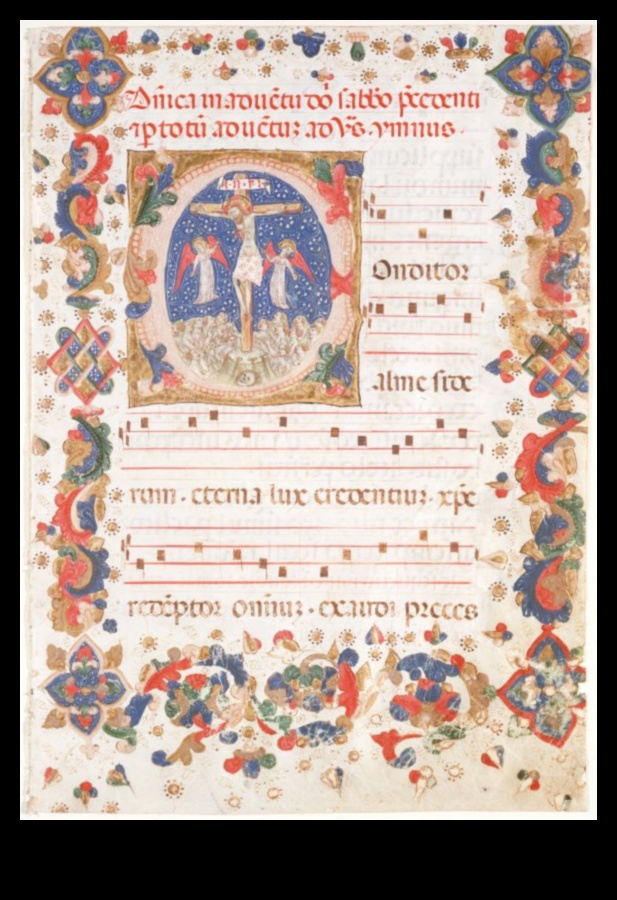 Dn̄ica in aduētu dō sabb̄o p̄cedenti
ip̄o totū aduētuȝ ad V̄s ymnus.
I·N·R·I
Onditor
alme side
rum. eterna lux credentiuȝ. xp̄e
redēptor omniuȝ. exaudi preces